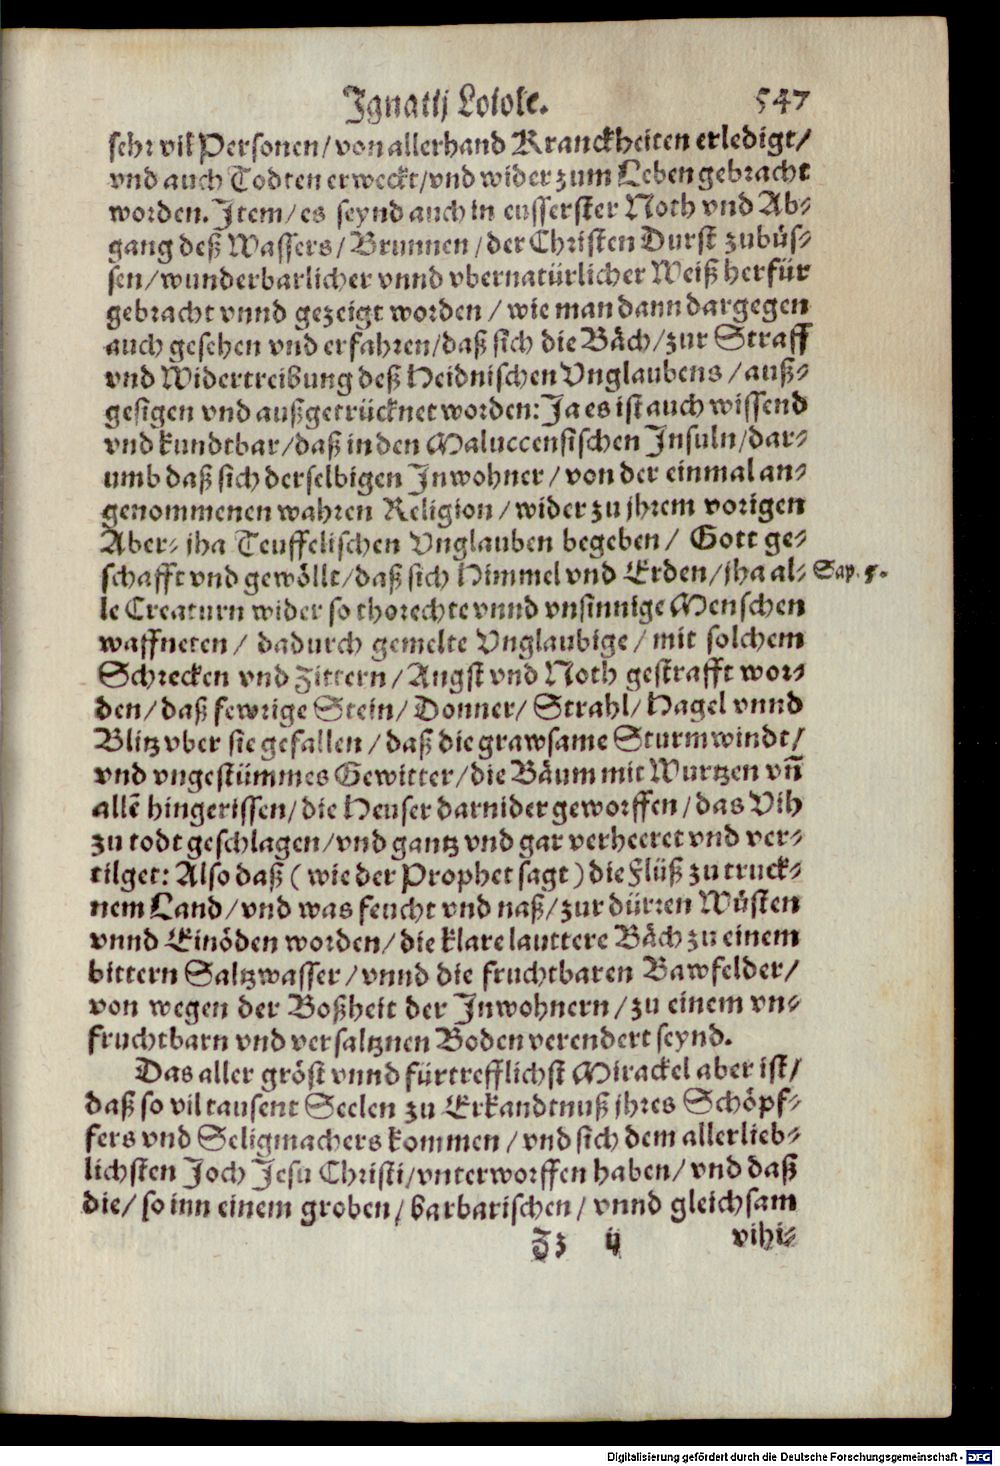 Ignatij Loiole. 547
sehr vil Personen/ von allerhand Kranckheiten erledigt/
vnd auch Todten erweckt/ vnd wider zum Leben gebracht
worden. Item/ es seynd auch in eusserster Noth vnd Ab-
gang deß Wassers/ Brunnen/ der Christen Durst zubüs-
sen/ wunderbarlicher vnnd vbernatürlicher Weiß herfür
gebracht vnnd gezeigt worden/ wie man dann dargegen
auch gesehen vnd erfahren/ daß sich die Bäch/ zur Straff
vnd Widertreibung deß Heidnischen Vnglaubens/ auß-
gesigen vnd außgetrücknet worden: Ja es ist auch wissend
vnd kundtbar/ daß in den Maluccensischen Insuln/ dar-
umb daß sich derselbigen Inwohner/ von der einmal an-
genommenen wahren Religion/ wider zu jhrem vorigen
Aber- jha Teuffelischen Vnglauben begeben/ Gott ge-
schafft vnd gewöllt/ daß sich Himmel vnd Erden/ jha al- Sap. 5.
le Creaturn wider so thorechte vnnd vnsinnige Menschen
waffneten/ dadurch gemelte Vnglaubige/ mit solchem
Schrecken vnd Zittern/ Angst vnd Noth gestrafft wor-
den/ daß fewrige Stein/ Donner/ Strahl/ Hagel vnnd
Blitz vber sie gefallen/ daß die grawsame Sturmwindt/
vnd vngestümmes Gewitter/ die Bäum mit Wurtzen vn̄
allē hingerissen/ die Heuser darnider geworffen/ das Vih
zu todt geschlagen/ vnd gantz vnd gar verheeret vnd ver-
tilget: Also daß ( wie der Prophet sagt ) die Flüß zu truck-
nem Land/ vnd was feucht vnd naß/ zur dürren Wüsten
vnnd Einöden worden/ die klare lauttere Bäch zu einem
bittern Saltzwasser/ vnnd die fruchtbaren Bawfelder/
von wegen der Boßheit der Inwohnern/ zu einem vn-
fruchtbarn vnd versaltznen Boden verendert seynd.
Das aller gröst vnnd fürtrefflichst Mirackel aber ist/
daß so vil tausent Seelen zu Erkandtnuß jhres Schöpf-
fers vnd Seligmachers kommen/ vnd sich dem allerlieb-
lichsten Joch Jesu Christi/ vnterworffen haben/ vnd daß
die/ so inn einem groben/ barbarischen/ vnnd gleichsam
Zz ij vihi-
Digitalisierung gefördert durch die Deutsche Forschungsgemeinschaft - DFG